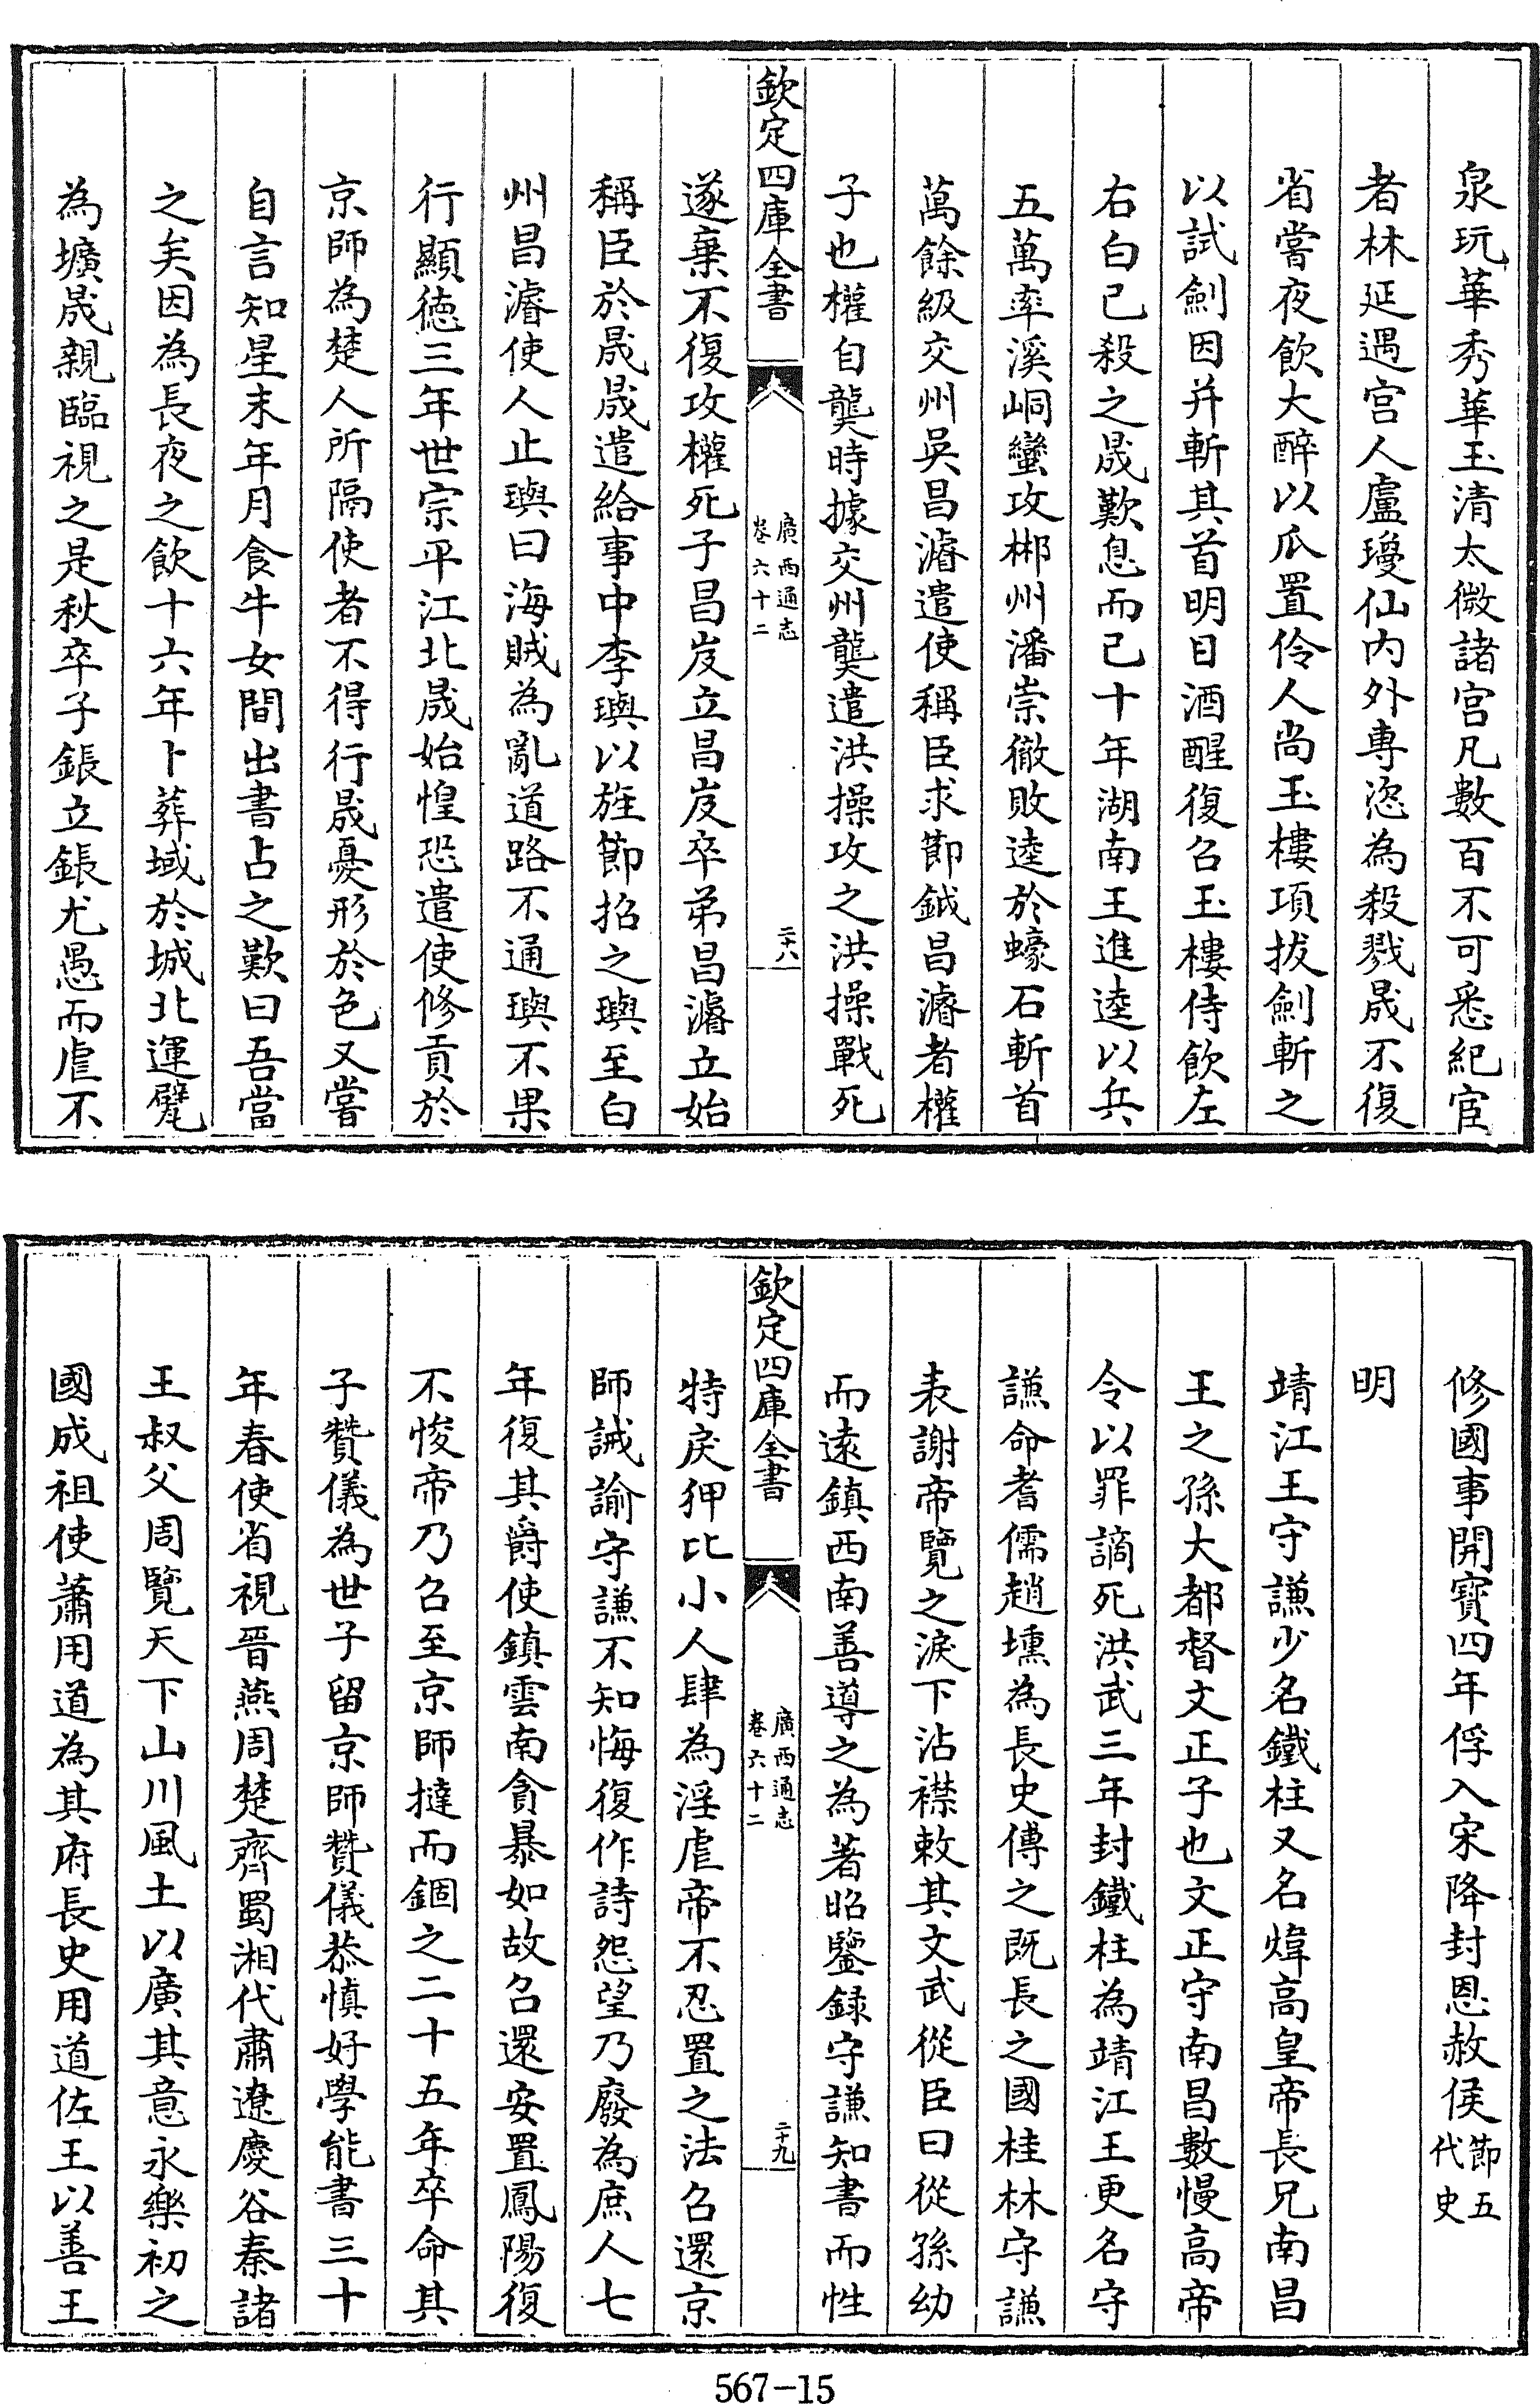 泉玩華秀華玉清太微諸宮凡數百不可悉紀宦
者林延遇宮人盧瓊仙内外專恣為殺戮晟不復
省嘗夜飲大醉以瓜置伶人尚玉樓項拔劍斬之
以試劍因并斬其首明日酒醒復召玉樓侍飲左
右白已殺之晟歎息而已十年湖南王進逵以兵
五萬率溪峒蠻攻郴州潘崇徹敗逵於蠔石斬首
萬餘級交州吳昌濬遣使稱臣求節鉞昌濬者權
子也權自龑時據交州龑遣洪操攻之洪操戰死
欽定四庫全書
廣西通志
卷六十二
二十八
遂棄不復攻權死子昌岌立昌岌卒弟昌濬立始
稱臣於晟晟遣給事中李璵以旌節招之璵至白
州昌濬使人止璵曰海賊為亂道路不通璵不果
行顯德三年世宗平江北晟始惶恐遣使修貢於
京師為楚人所隔使者不得行晟憂形於色又嘗
自言知星末年月食牛女間出書占之歎曰吾當
之矣因為長夜之飲十六年卜葬域於城北運甓
為壙晟親臨視之是秋卒子鋹立鋹尤愚而虐不
修國事開寶四年俘入宋降封恩赦侯節五
代史
明
靖江王守謙少名鐵柱又名煒高皇帝長兄南昌
王之孫大都督文正子也文正守南昌數慢高帝
令以罪謫死洪武三年封鐵柱為靖江王更名守
謙命耆儒趙壎為長史傅之既長之國桂林守謙
表謝帝覽之淚下沾襟敕其文武從臣曰從孫幼
而遠鎮西南善導之為著昭鑒録守謙知書而性
欽定四庫全書
廣西通志
卷六十二
二十九
特戾狎比小人肆為淫虐帝不忍置之法召還京
師誡諭守謙不知悔復作詩怨望乃廢為庶人七
年復其爵使鎮雲南貪暴如故召還安置鳳陽復
不悛帝乃召至京師撻而錮之二十五年卒命其
子贊儀為世子留京師贊儀恭慎好學能書三十
年春使省視晉燕周楚齊蜀湘代肅遼慶谷秦諸
王叔父周覽天下山川風土以廣其意永樂初之
國成祖使蕭用道為其府長史用道佐王以善王
567-15